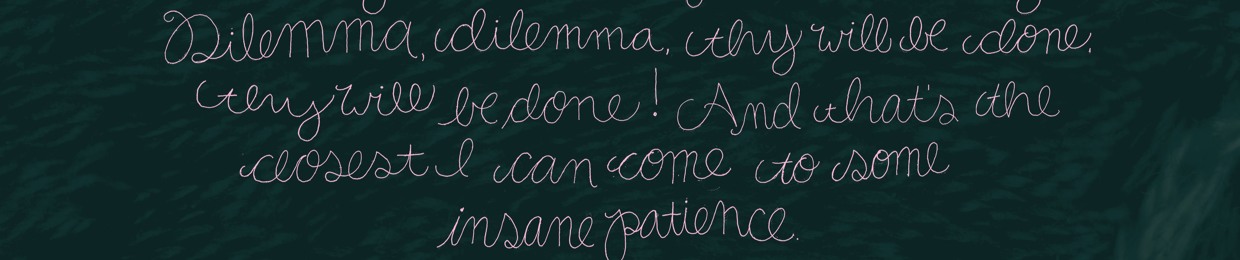 Dilemma, dilemma, thy will be done.
thy will be done! And that's the
closest I can come to some
insane patience.